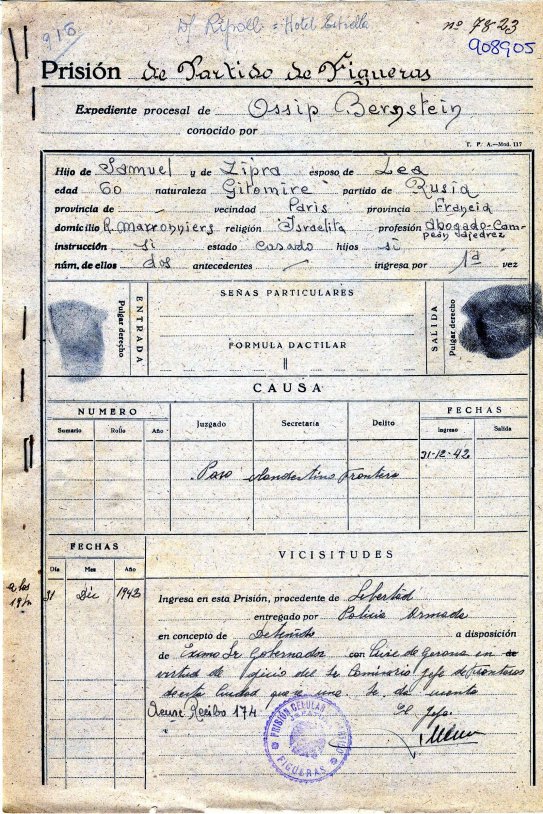 918
Ripoll = Hotel Estrella
nº 7823
908905
Prisión de Partido de Figueras
Expediente procesal de Ossip Bernstein
conocido por
T. P. A.—Mod. 117
Hijo de Samuel y de Zipra esposo de Lea
edad 60 naturaleza Gitomire partido de Rusia
provincia de - vecindad Paris provincia Francia
domicilio R. Marronniers religión Israelita profesión Abogado-Campeón ajedrez
instrucción si estado casado hijos si
núm. de ellos dos antecedentes - ingresa por 1ª vez
Pulgar derecho
ENTRADA
SEÑAS PARTICULARES
FORMULA DACTILAR
SALIDA
Pulgar derecho
CAUSA
NUMERO
Juzgado
Secretaria
Delito
FECHAS
Sumario
Rollo
Año
Ingreso
Salida
31-12-42
Paso clandestino frontera
FECHAS
VICISITUDES
Día
Mes
Año
a las
31 Dic 1942
Ingresa en esta Prisión, procedente de Libertad
entregado por Policia Armada
en concepto de Detenido a disposición
de Excmo Sr Gobernador Civil de Gerona en
virtud de oficio del Sr Comisario Jefe de Fronteras
de esta Ciudad que se une.
Acuse Recibo 174
El Jefe.
PRISIÓN CELULAR
FIGUERAS